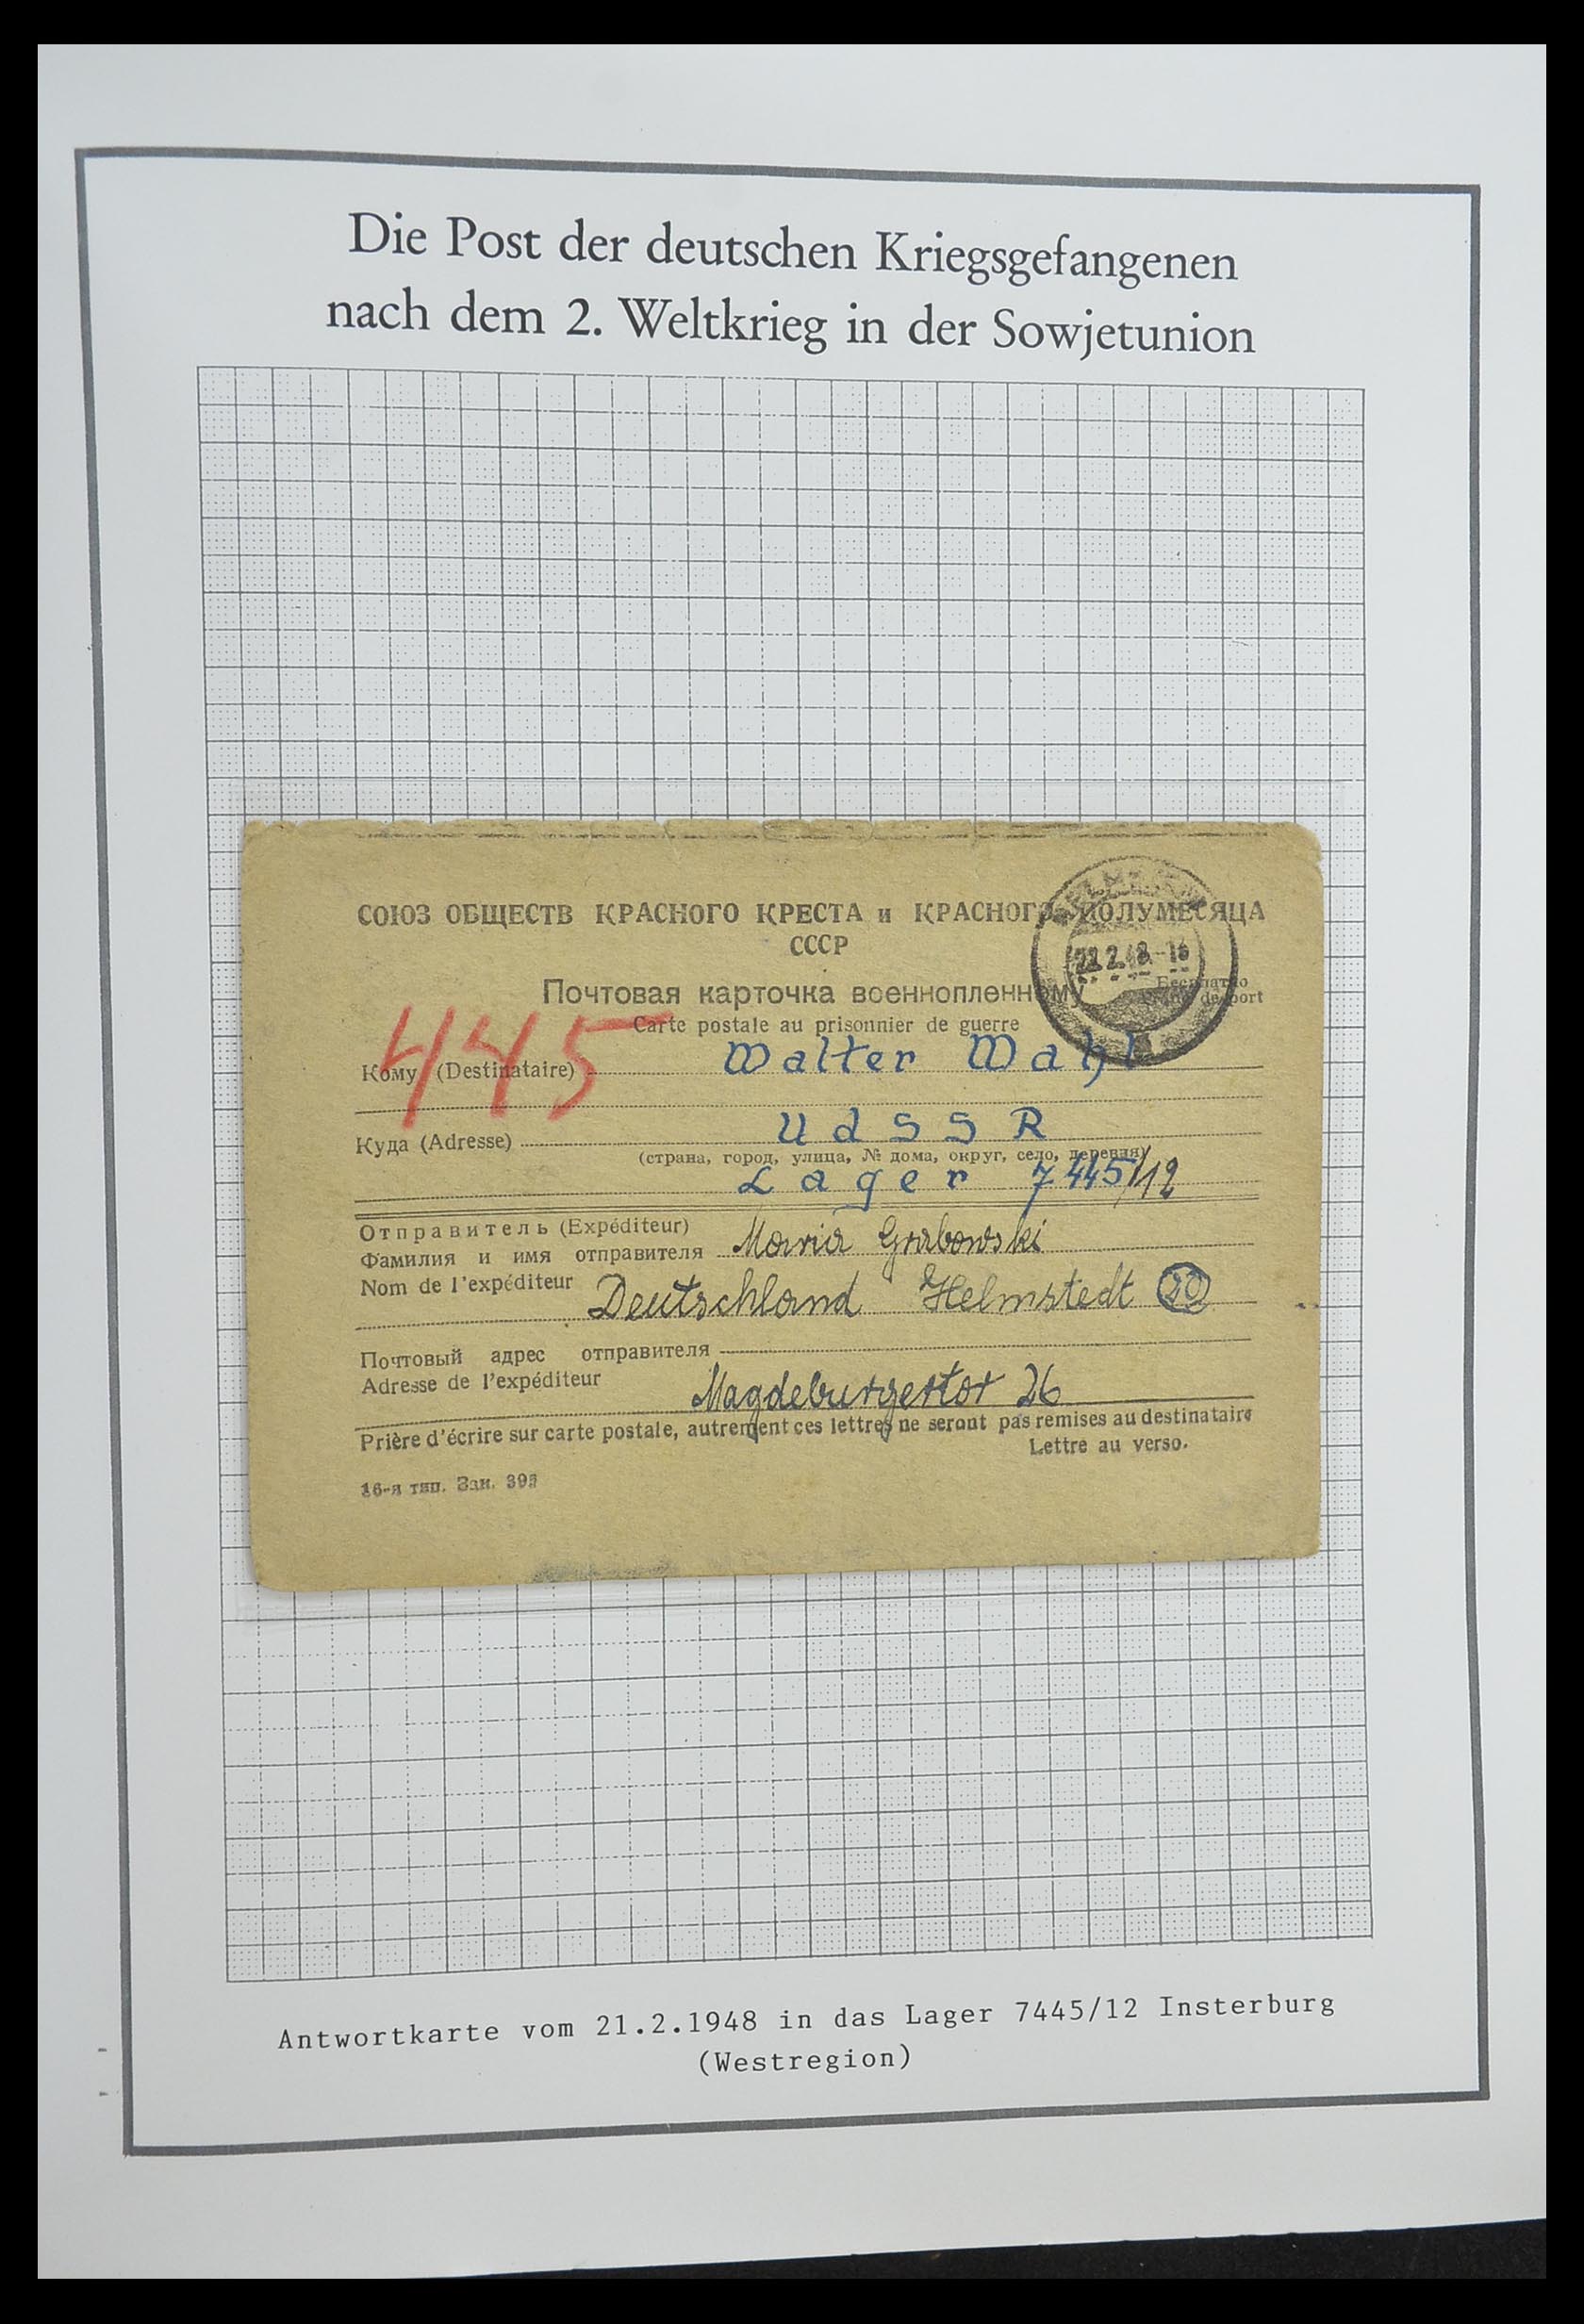 Die Post der deutschen Kriegsgefangenen
nach dem 2. Weltkrieg in der Sowjetunion
СОЮЗ ОБЩЕСТВ КРАСНОГО КРЕСТА и КРАСНОГО ПОЛУМЕСЯЦА
СССР
22.2.48.-16
Почтовая карточка военнопленному
Бесплатно
Carte postale au prisonnier de guerre
de port
445
Кому (Destinataire) Walter Wahl
Куда (Adresse) UdSSR
(страна, город, улица, № дома, округ, село, деревня)
Lager 7445/12
Отправитель (Expéditeur)
Фамилия и имя отправителя Maria Grabowski
Nom de l'expéditeur
Deutschland Helmstedt 20
Почтовый адрес отправителя
Adresse de l'expéditeur
Magdeburgertor 26
Prière d'écrire sur carte postale, autrement ces lettres ne seront pas remises au destinataire
Lettre au verso.
16-я тип. Зак.
Antwortkarte vom 21.2.1948 in das Lager 7445/12 Insterburg
(Westregion)